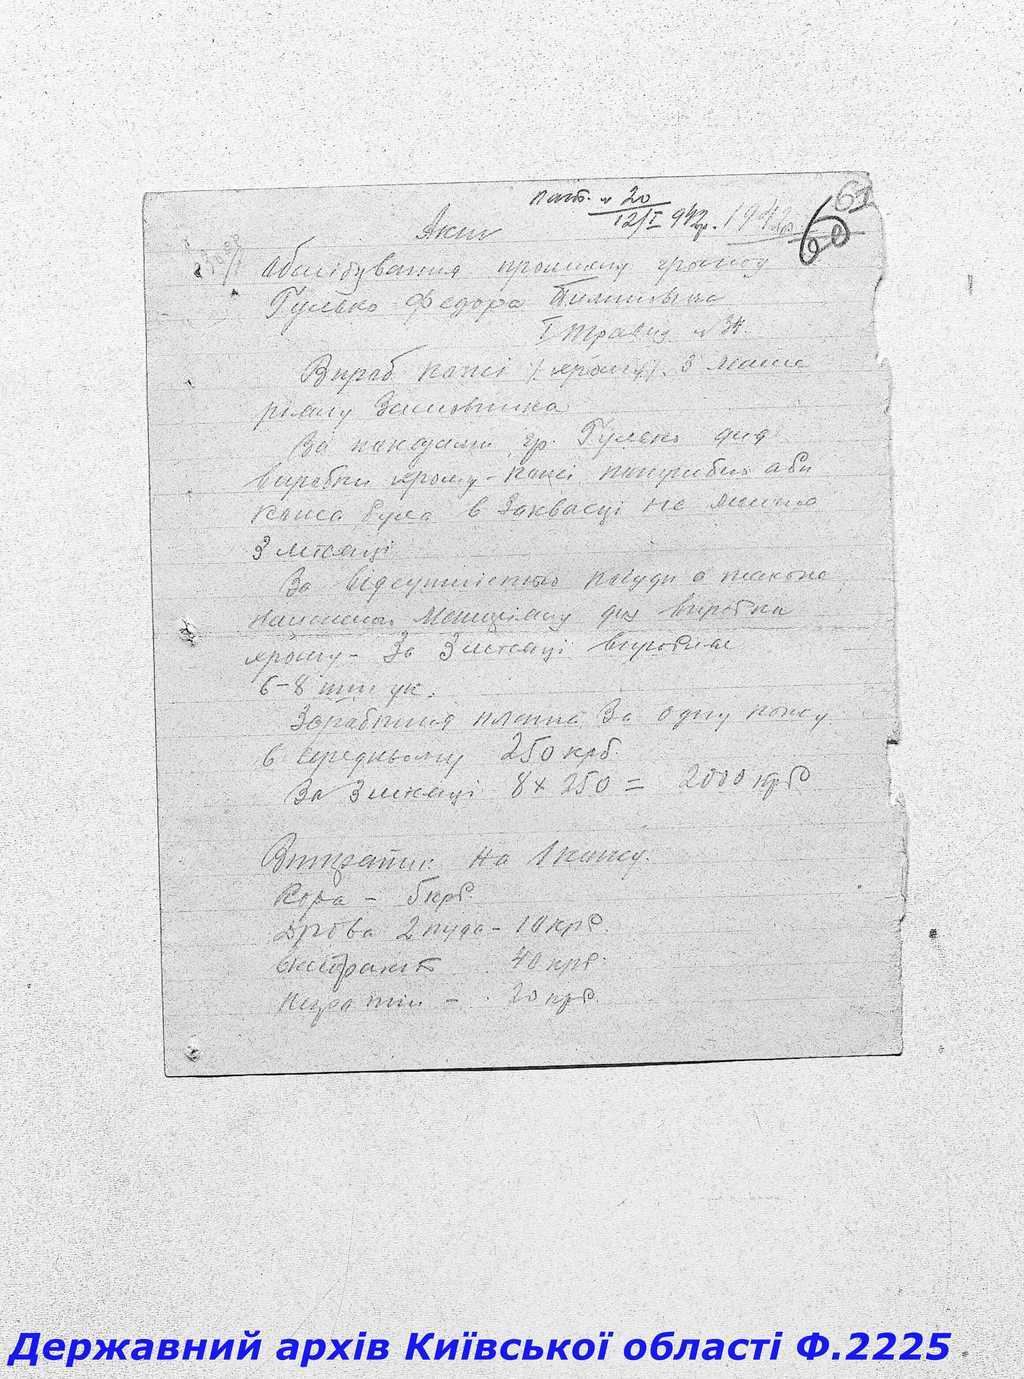 пат. № 20
12/I 942р. 1942р. 60 61
Акт
обслідування промислу гр-на
Гулько Федора
I Травня № 37.
Вираб. кожі /хрому/. З мате
ріалу Замовника
За показами гр. Гулько для
виробки хрому-кожі потрібно аби
кожа була в Заквасці не менше
3 місяці
За відсутністю посуди а також
належного для виробки
хрому - За 3 місяці виробляє
6-8 штук.
Заробітня платня За одну кожу
в середньому 250 крб.
За 3 місяці 8 х 250 = 2000 крб
Витрати: На 1 кожу.
Кора - 5 крб.
Дрова 2 пуда - 10 крб.
Екстракт 40 крб.
- 20 крб.
Державний архів Київської області Ф.2225